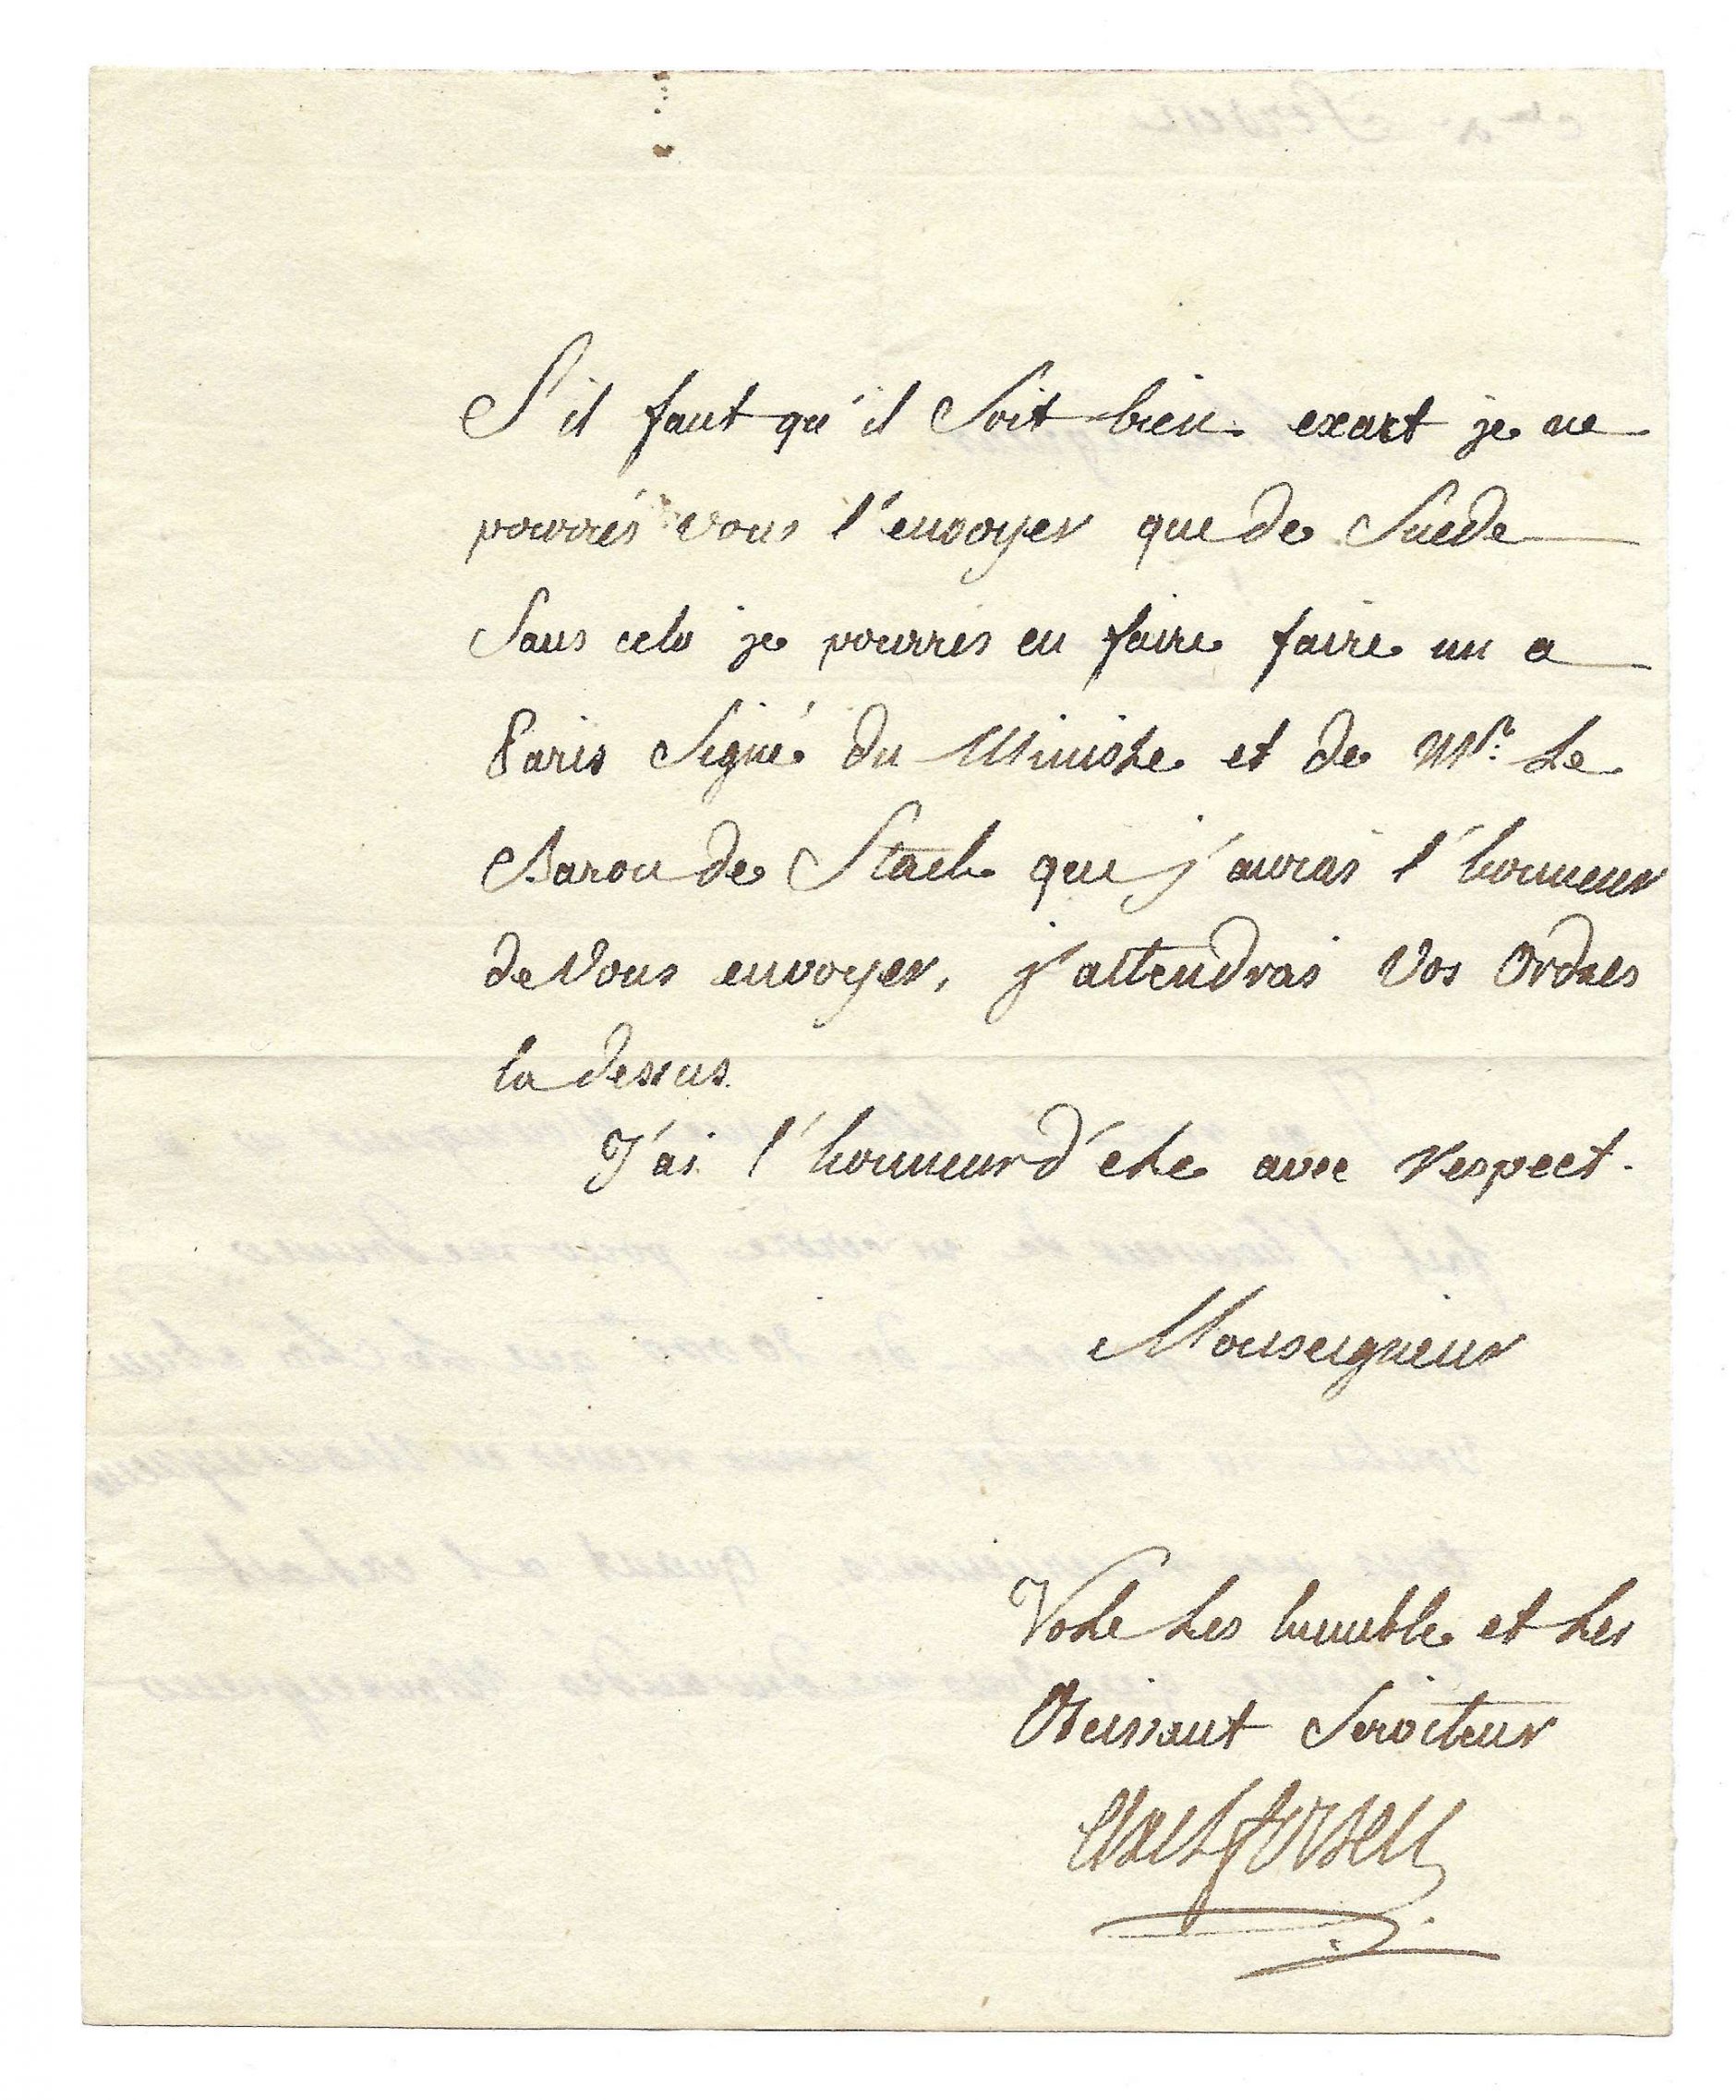 S'il faut qu'il Soit bien exact je ne
pourrés vous l'envoyer que de Suede
Sans cela je pourrés en faire faire un a
Paris Signé du Ministre et de Mr. Le
Baron de Stael que j'aurai l'honneur
de Vous envoyer, j'attendrai Vos Ordres
la dessus.
J'ai l'honneur d'etre avec respect.
Monseigneur
Votre tres humble et tres
Obeissant Serviteur
Axel fersen